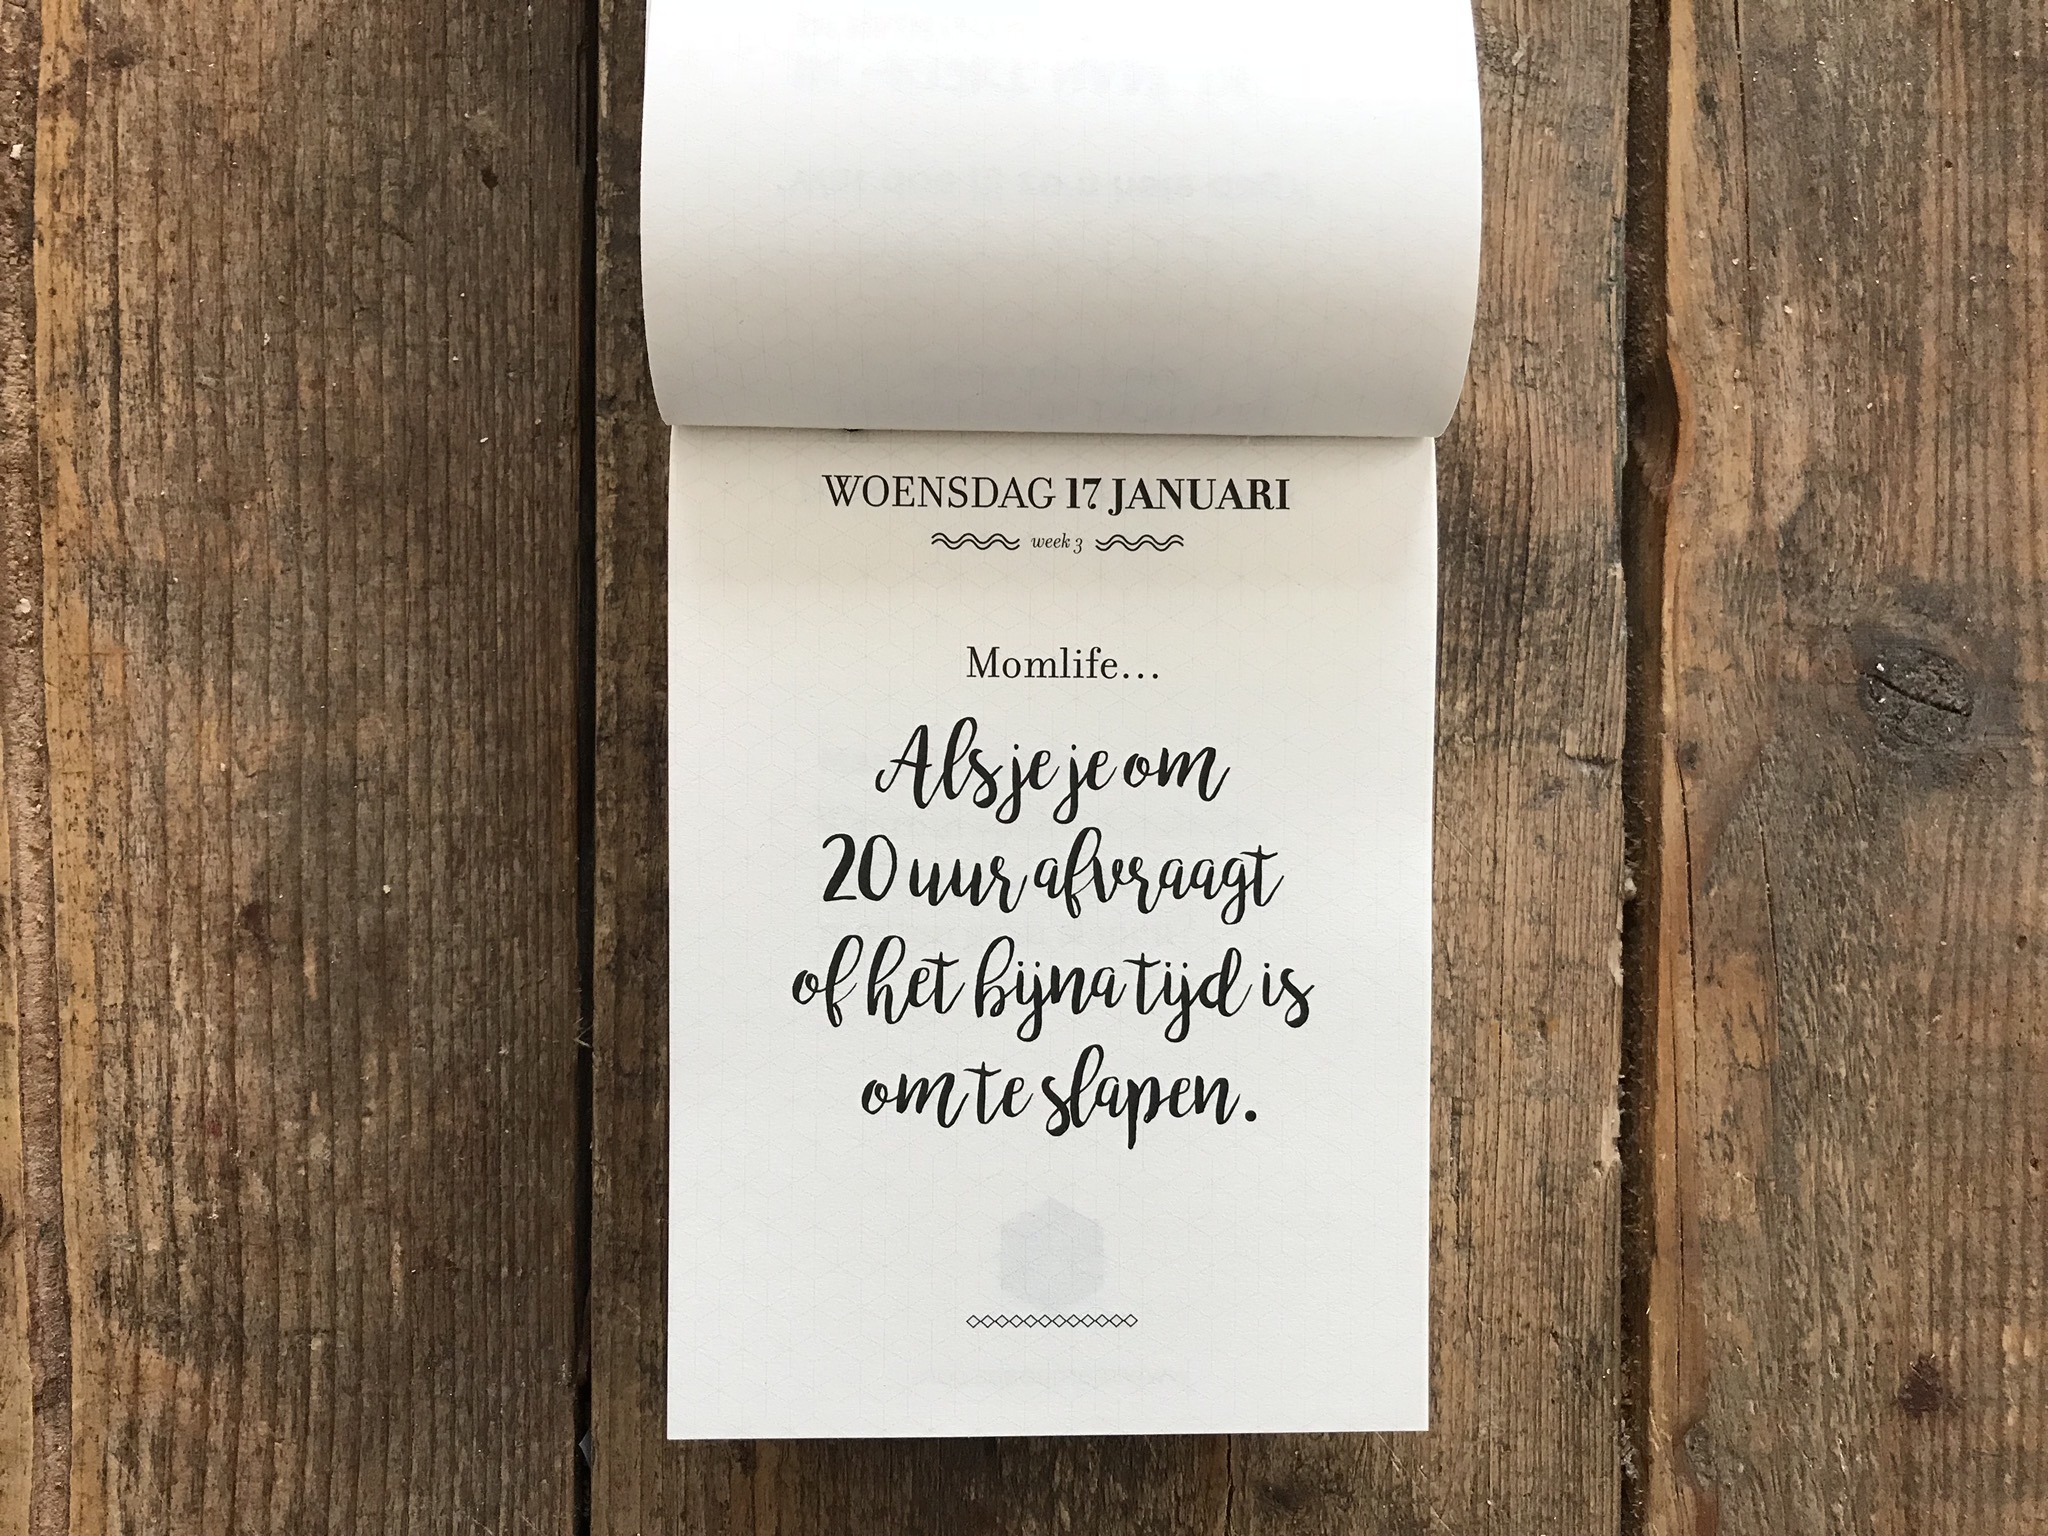 WOENSDAG 17 JANUARI
week 3
Momlife...
Als je je om
20 uur afvraagt
of het bijna tijd is
om te slapen.